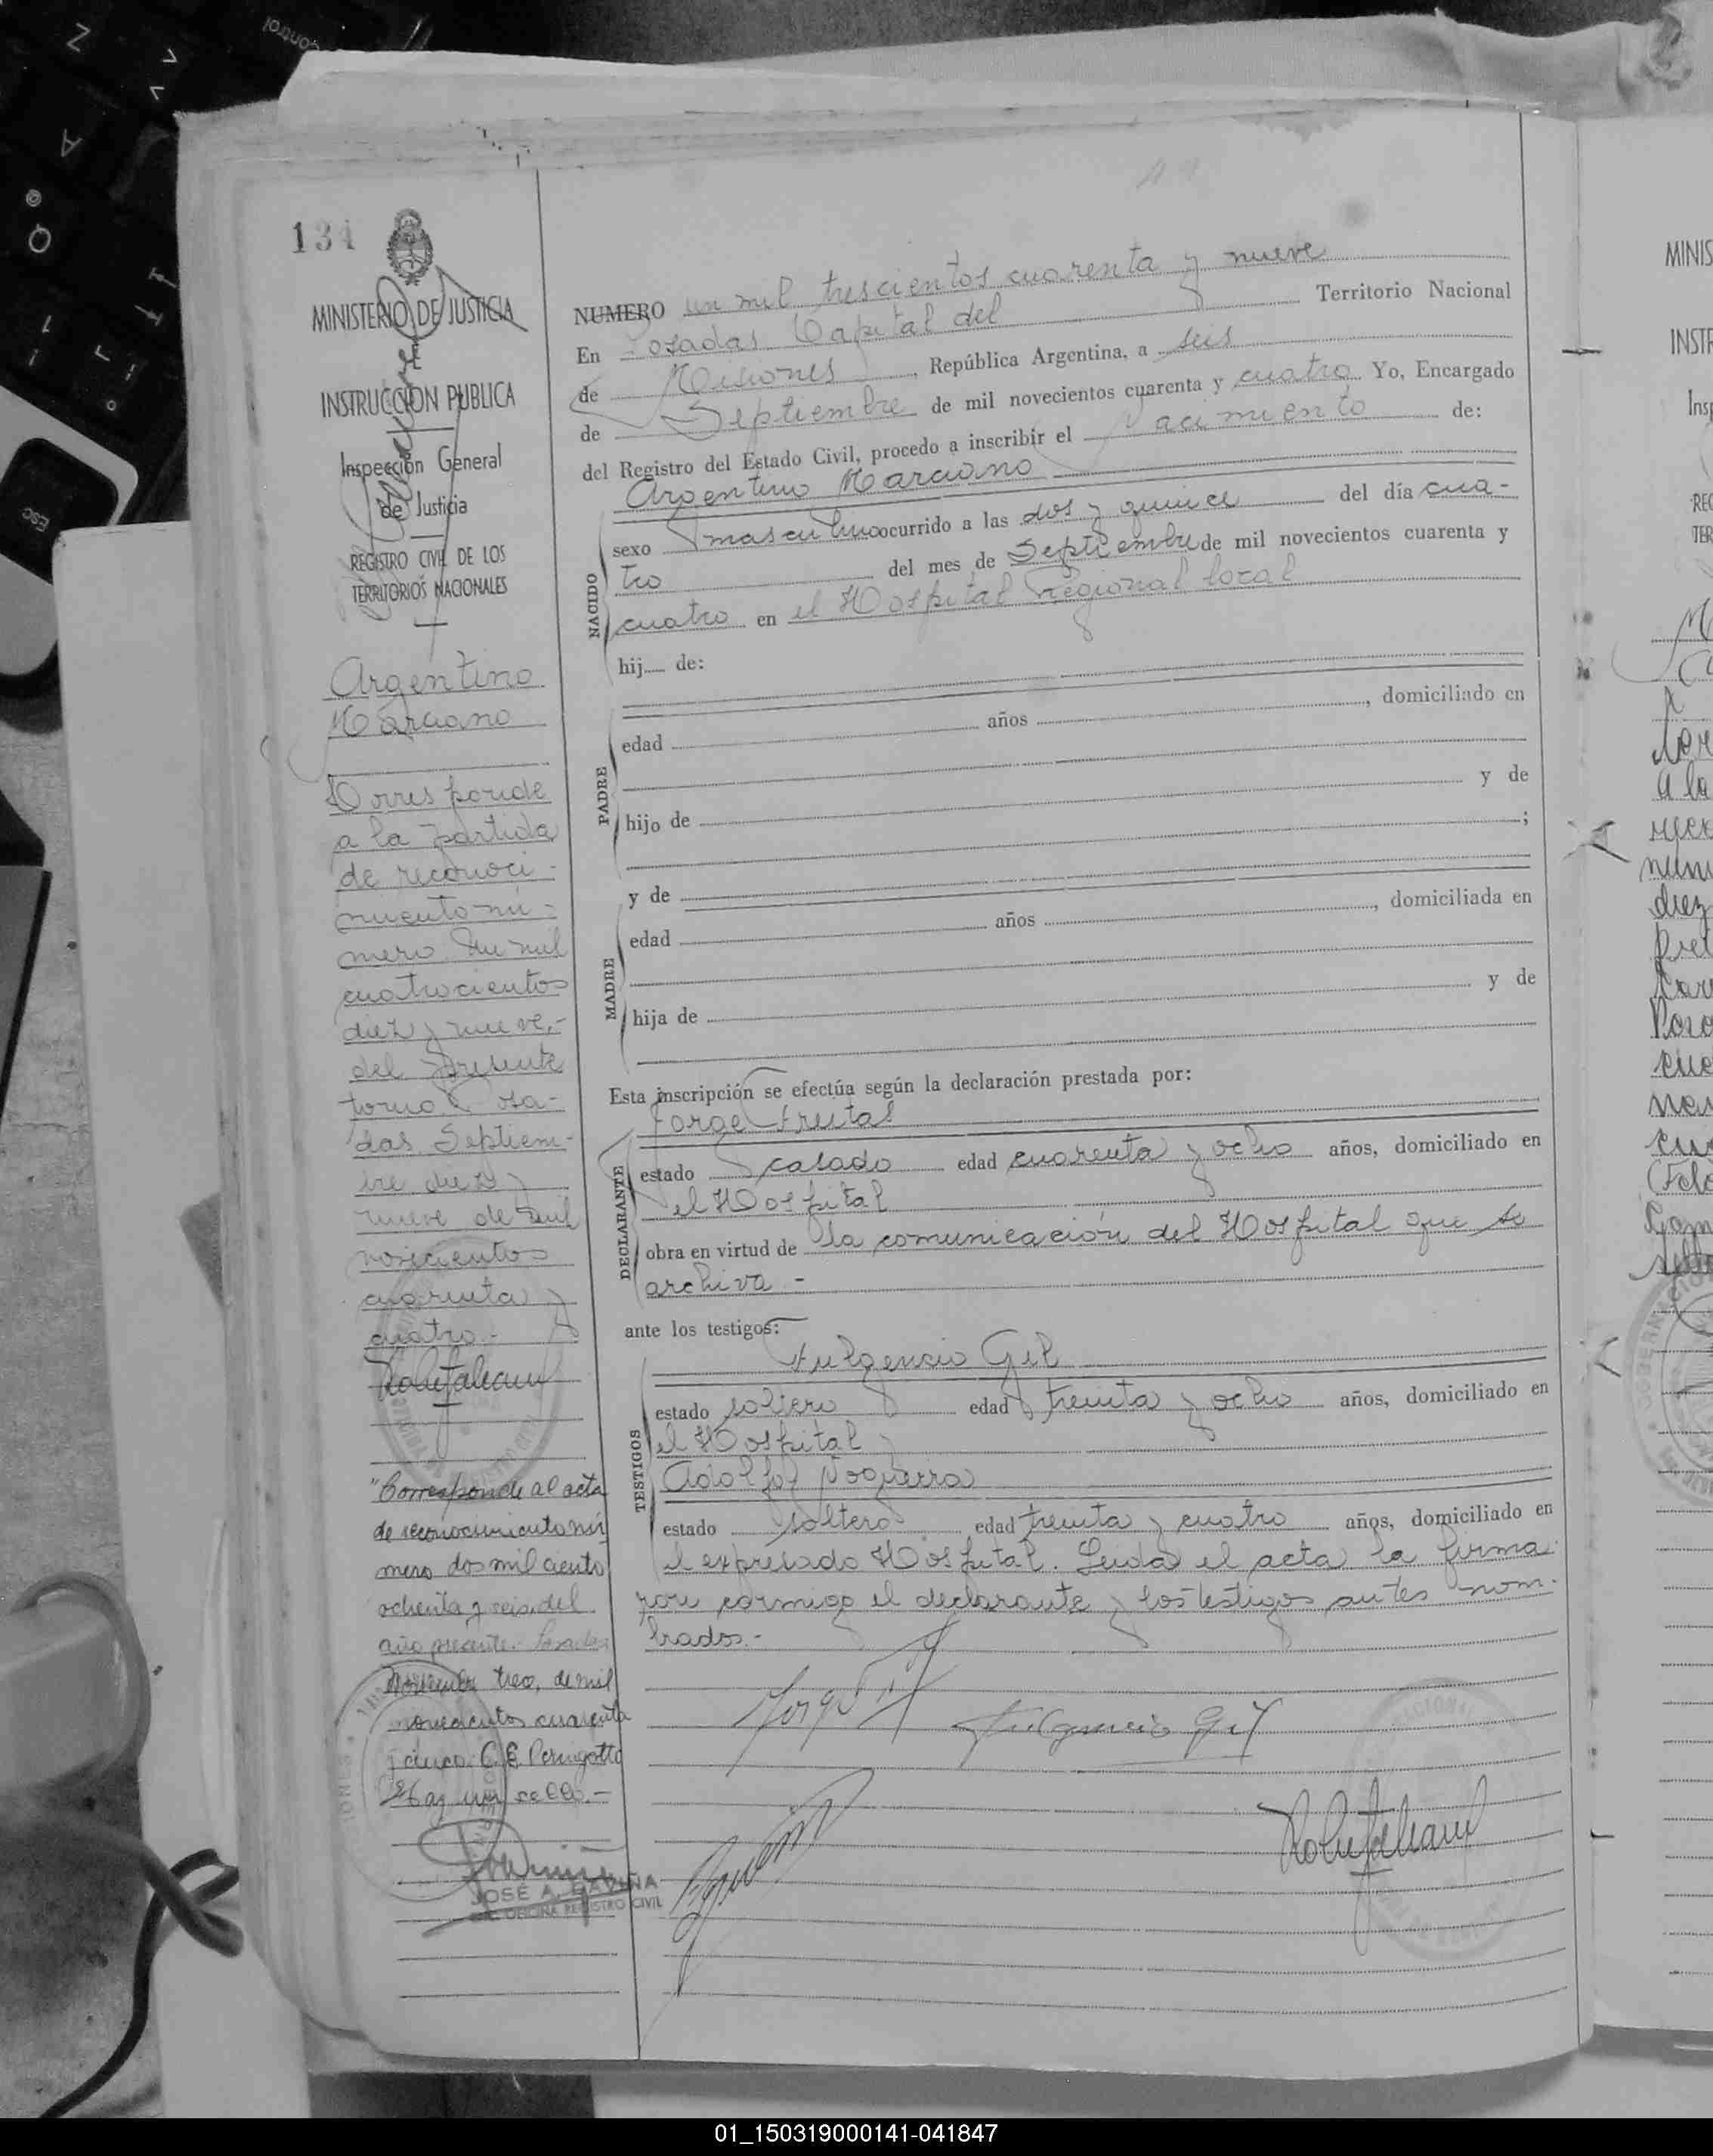 134
MINISTERIO DE JUSTICIA
E
INSTRUCCION PUBLICA
Inspección General
de Justicia
REGISTRO CIVIL DE LOS
TERRITORIOS NACIONALES
Argentino
Marciano
Corresponde
a la partida
de reconoci-
miento nú-
mero un mil
cuatrocientos
diez y nueve,-
del presente
tomo. Posa-
das, Septiem-
bre diez y
nueve de mil
novecientos
cuarenta y
cuatro.-
"Corresponde al acta
de reconocimiento nú
mero dos mil ciento
ochenta y seis del
año presente. Posadas
Noviembre tres, de mil
novecientos cuarenta
y cinco. C. E. Perugotto
Hay un sello.-
JOSÉ A. GAVIÑA
OFICINA REGISTRO CIVIL
NUMERO un mil trescientos cuarenta y nueve
En Posadas Capital del Territorio Nacional
de Misiones, República Argentina, a seis
de Septiembre de mil novecientos cuarenta y cuatro Yo, Encargado
del Registro del Estado Civil, procedo a inscribir el Nacimiento de:
NACIDO
Argentino Marciano
sexo masculino ocurrido a las dos y quince del día cua-
tro del mes de Septiembre de mil novecientos cuarenta y
cuatro en el Hospital Regional local
hij de:
PADRE
edad años , domiciliado en
hijo de y de
;
MADRE
y de
edad años , domiciliada en
hija de y de
Esta inscripción se efectúa según la declaración prestada por:
DECLARANTE
Jorge Freitas
estado casado edad cuarenta y ocho años, domiciliado en
el Hospital
obra en virtud de la comunicación del Hospital que se
archiva -
ante los testigos:
TESTIGOS
Fulgencio Gil
estado soltero edad treinta y ocho años, domiciliado en
el Hospital y
Adolfo Noguera
estado soltero edad treinta y cuatro años, domiciliado en
el expresado Hospital. Leida el acta la firma
ron conmigo el declarante y los testigos antes nom-
brados.-
Fulgencio Gil
MINIS
INSTR
Insp
01_150319000141-041847